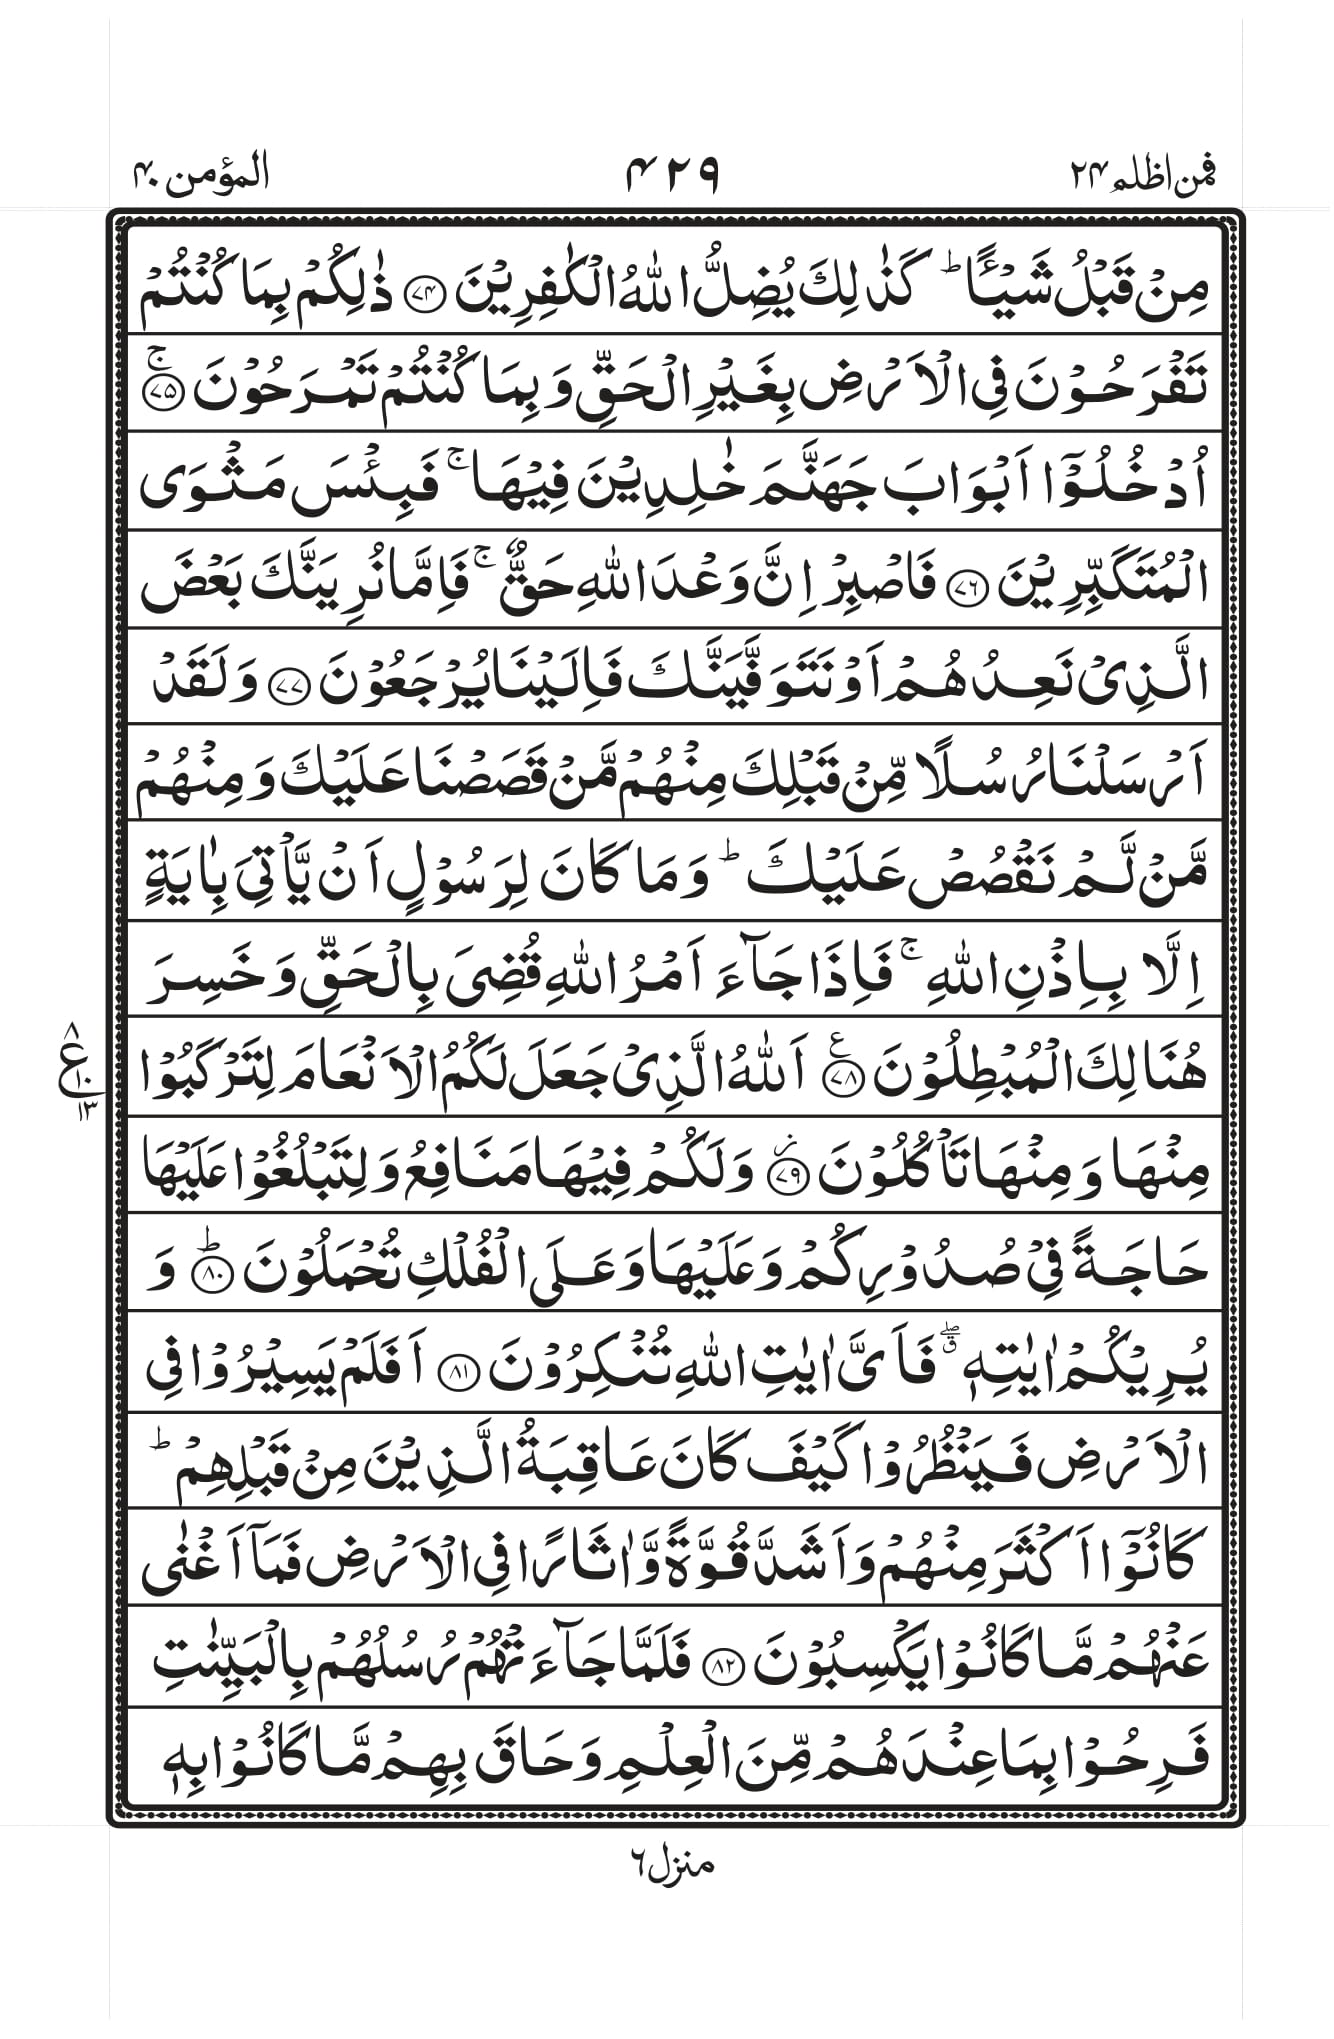 فمن اظلم ۲۴
۴۲۹
المؤمن ۴۰
مِنْ قَبْلُ شَيْـًٔا ؕ كَذٰلِكَ يُضِلُّ اللّٰهُ الْكٰفِرِيْنَ ﴿۷۴﴾ ذٰلِكُمْ بِمَا كُنْتُمْ
تَفْرَحُوْنَ فِي الْاَرْضِ بِغَيْرِ الْحَقِّ وَ بِمَا كُنْتُمْ تَمْرَحُوْنَ ۚ﴿۷۵﴾
اُدْخُلُوْۤا اَبْوَابَ جَهَنَّمَ خٰلِدِيْنَ فِيْهَا ۚ فَبِئْسَ مَثْوَى
الْمُتَكَبِّرِيْنَ ﴿۷۶﴾ فَاصْبِرْ اِنَّ وَعْدَ اللّٰهِ حَقٌّ ۚ فَاِمَّا نُرِيَنَّكَ بَعْضَ
الَّذِيْ نَعِدُهُمْ اَوْ نَتَوَفَّيَنَّكَ فَاِلَيْنَا يُرْجَعُوْنَ ﴿۷۷﴾ وَ لَقَدْ
اَرْسَلْنَا رُسُلًا مِّنْ قَبْلِكَ مِنْهُمْ مَّنْ قَصَصْنَا عَلَيْكَ وَ مِنْهُمْ
مَّنْ لَّمْ نَقْصُصْ عَلَيْكَ ؕ وَ مَا كَانَ لِرَسُوْلٍ اَنْ يَّاْتِيَ بِاٰيَةٍ
اِلَّا بِاِذْنِ اللّٰهِ ۚ فَاِذَا جَآءَ اَمْرُ اللّٰهِ قُضِيَ بِالْحَقِّ وَ خَسِرَ
هُنَالِكَ الْمُبْطِلُوْنَ ﴿۷۸﴾ع اَللّٰهُ الَّذِيْ جَعَلَ لَكُمُ الْاَنْعَامَ لِتَرْكَبُوْا
ع ۸ ۱۰ ۱۳
مِنْهَا وَ مِنْهَا تَاْكُلُوْنَ ﴿۷۹﴾ز وَ لَكُمْ فِيْهَا مَنَافِعُ وَ لِتَبْلُغُوْا عَلَيْهَا
حَاجَةً فِيْ صُدُوْرِكُمْ وَ عَلَيْهَا وَ عَلَى الْفُلْكِ تُحْمَلُوْنَ ؕ﴿۸۰﴾ وَ
يُرِيْكُمْ اٰيٰتِهٖ ۖق فَاَيَّ اٰيٰتِ اللّٰهِ تُنْكِرُوْنَ ﴿۸۱﴾ اَفَلَمْ يَسِيْرُوْا فِي
الْاَرْضِ فَيَنْظُرُوْا كَيْفَ كَانَ عَاقِبَةُ الَّذِيْنَ مِنْ قَبْلِهِمْ ؕ
كَانُوْۤا اَكْثَرَ مِنْهُمْ وَ اَشَدَّ قُوَّةً وَّ اٰثَارًا فِي الْاَرْضِ فَمَاۤ اَغْنٰى
عَنْهُمْ مَّا كَانُوْا يَكْسِبُوْنَ ﴿۸۲﴾ فَلَمَّا جَآءَتْهُمْ رُسُلُهُمْ بِالْبَيِّنٰتِ
فَرِحُوْا بِمَا عِنْدَهُمْ مِّنَ الْعِلْمِ وَ حَاقَ بِهِمْ مَّا كَانُوْا بِهٖ
منزل ٦